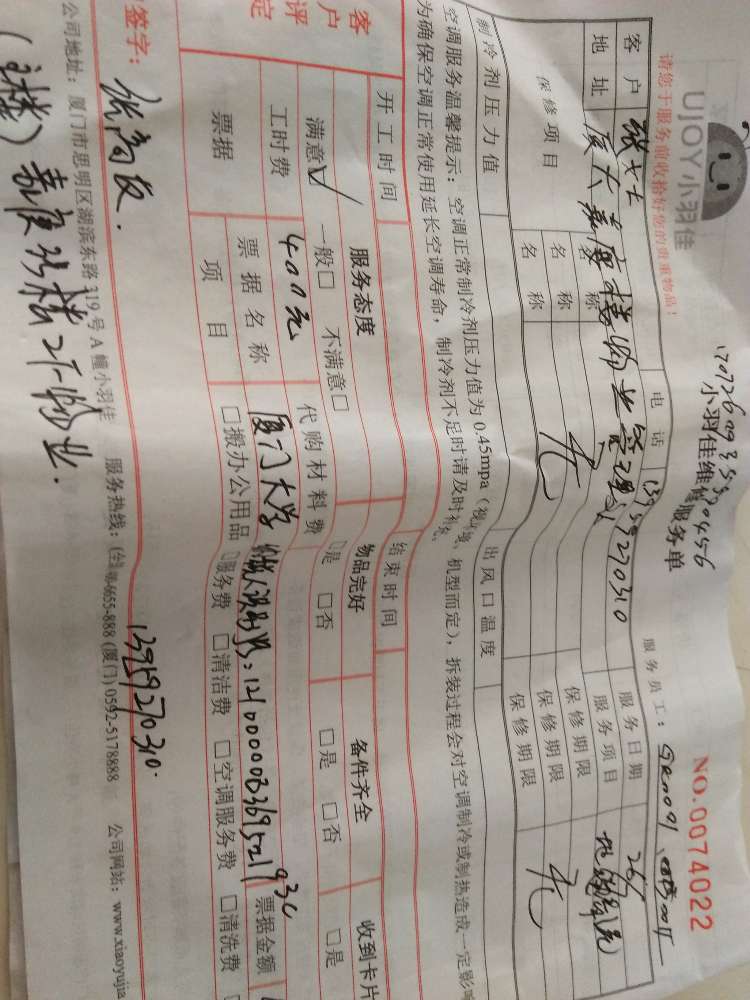 UJOY 小羽佳
小羽佳维修服务单
NO.0074022
请您于服务前收拾好您的贵重物品！
服务员工：
客户 张女士 电话 13959270310 服务日期
地址 厦大嘉庚楼物业管理 服务项目
保修项目 名称 保修期限
名称 无 保修期限 无
名称 保修期限
制冷剂压力值 出风口温度
空调服务温馨提示：空调正常制冷剂压力值为 0.45mpa（视环境、机型而定），拆装过程会对空调制冷或制热造成一定影响
为确保空调正常使用延长空调寿命，制冷剂不足时请及时补充。
开工时间 结束时间
客户评定
服务态度 物品完好 备件齐全 收到卡片
满意☑ 一般□ 不满意□ □是 □否 □是 □否 □是
工时费 400元 代购材料费
票据 票据名称 厦门大学 纳税人识别号： 票据金额
项目 □搬办公用品 □服务费 □清洁费 □空调服务费 □清洗费
签字：
13959270310.
公司地址：厦门市思明区湖滨东路 319号 A 幢小羽佳 服务热线： 6655-888 (厦门) 0592-5178888 公司网站：www.xiaoyujia
嘉庚 楼 物业.